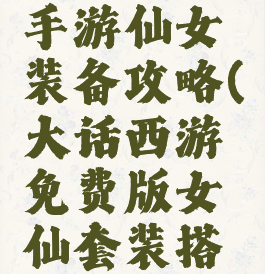 手游仙女
装备攻略(
大话西游
免费版女
仙套装搭